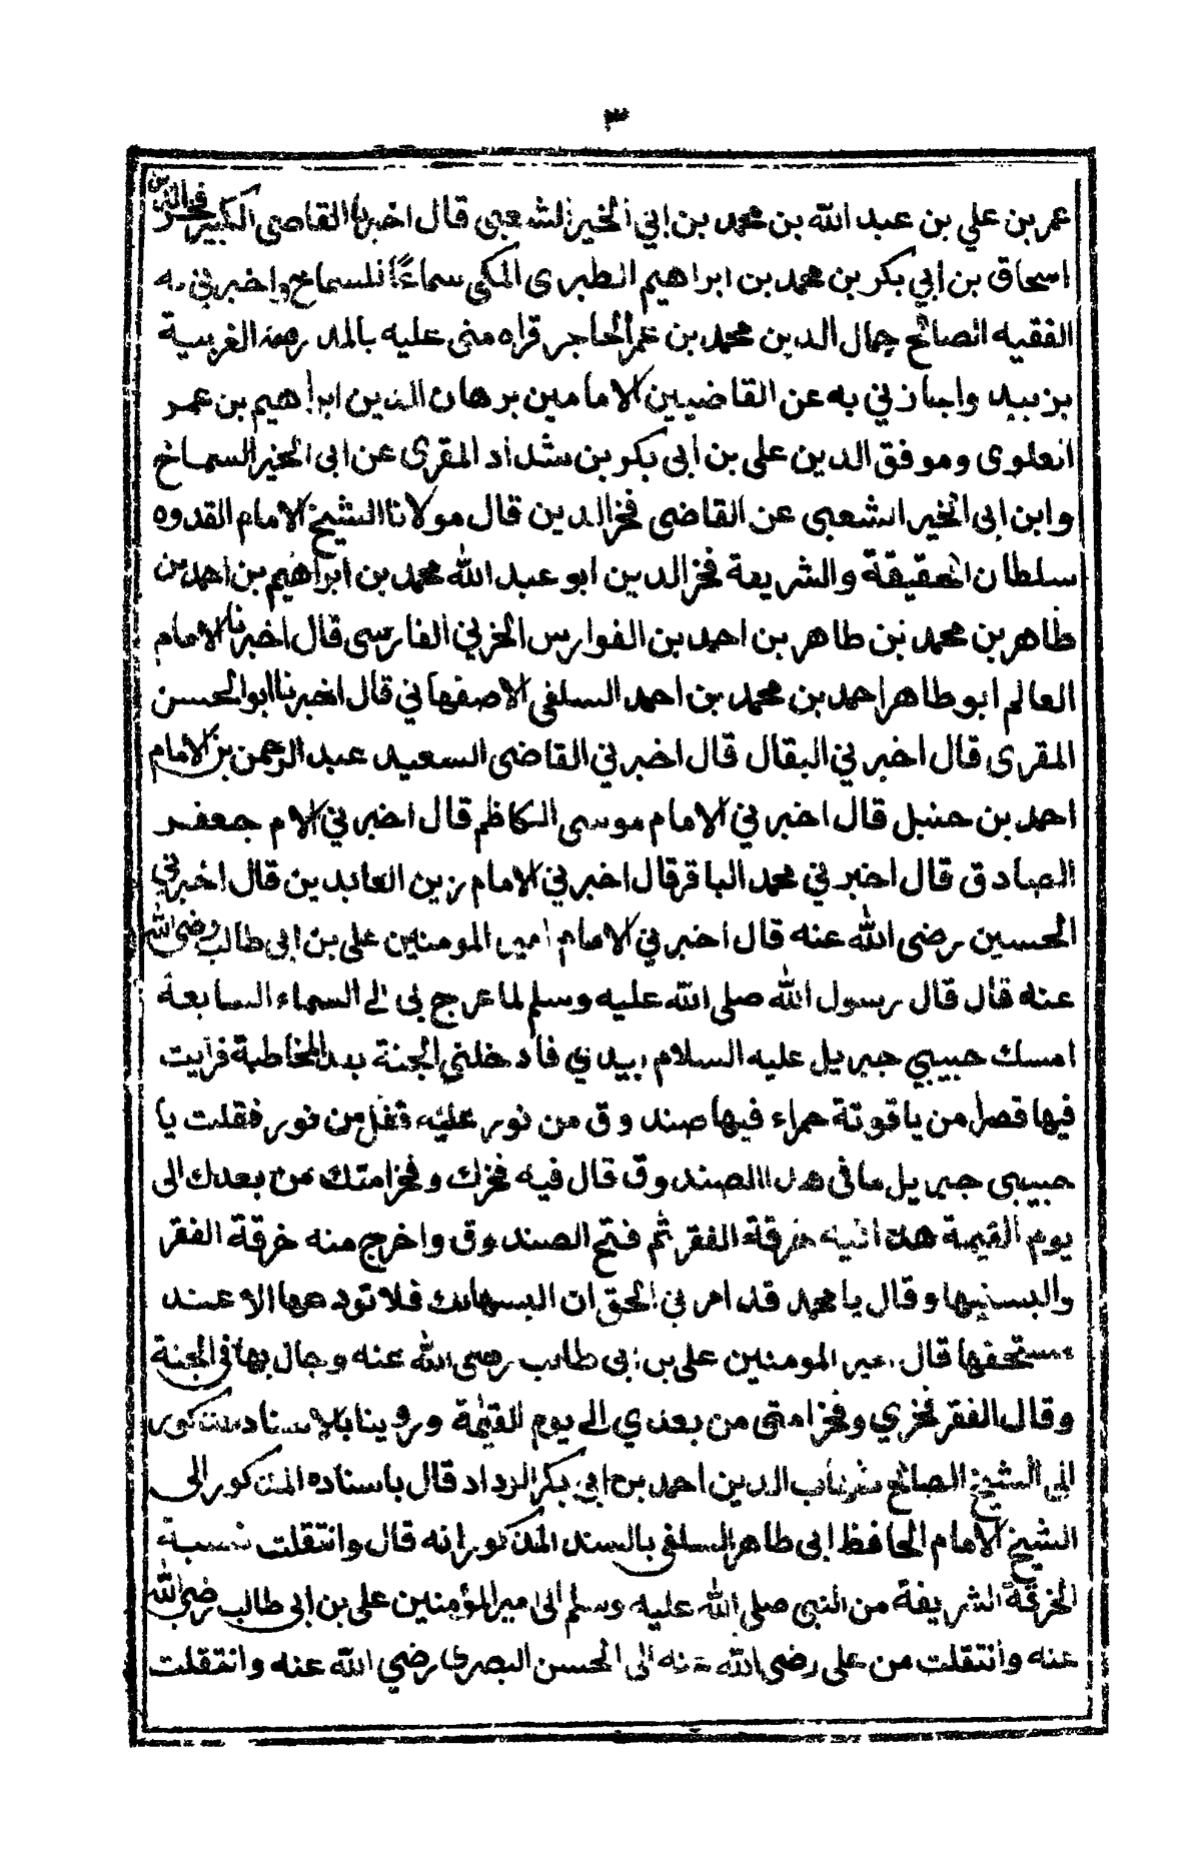 ٣
عمر بن علي بن عبد الله بن محمد بن ابي الخير الشعبى قال اخبرنا القاضى الكبير فخر الدين
اسحاق بن ابي بكر بن محمد بن ابراهيم الطبرى المكى سماعًا للسماخ واخبرني به
الفقيه الصالح جمال الدين محمد بن عمر الحاجر قراه منى عليه بالمدرسة الغربية
بزبيد واجازني به عن القاضيين الامامين برهان الدين ابراهيم بن عمر
العلوى وموفق الدين على بن ابى بكر بن شداد المقرى عن ابى الخير السماخ
وابن ابى الخير الشعبى عن القاضى فخر الدين قال مولانا الشيخ الامام القدوه
سلطان الحقيقة والشريعة فخر الدين ابو عبد الله محمد بن ابراهيم بن احمد بن
طاهر بن محمد بن طاهر بن احمد بن الفوارس الخزني الفارسى قال اخبرنا الامام
العالم ابو طاهر احمد بن محمد بن احمد السلفى الاصفهاني قال اخبرنا ابو الحسن
المقرى قال اخبرني البقال قال اخبرني القاضى السعيد عبد الرحمن بن الامام
احمد بن حنبل قال اخبرني الامام موسى الكاظم قال اخبرني الام جعفر
الصادق قال اخبرني محمد الباقر قال اخبرني الامام زين العابدين قال اخبرني
الحسين رضى الله عنه قال اخبرني الامام امير المومنين على بن ابى طالب رضى الله
عنه قال قال رسول الله صلى الله عليه وسلم لما عرج بى الى السماء السابعة
امسك حبيبي جبريل عليه السلام بيدي فادخلنى الجنة بعد المخاطبة فرايت
فيها قصرا من ياقوتة حمراء فيها صندوق من نور عليه قفل من نور فقلت يا
حبيبى جبريل ما فى هذا الصندوق قال فيه فخرك وفخر امتك من بعدك الى
يوم القيمة هذا فيه خرقة الفقر ثم فتح الصندوق واخرج منه خرقة الفقر
والبسنيها وقال يا محمد قد امرنى الحق ان البسهالك فلا تودعها الا عند
مستحقها قال امير المومنين على بن ابى طالب رضى الله عنه وجال بها فى الجنة
وقال الفقر فخري وفخر امتى من بعدي الى يوم القيمة وروينا بالاسناد المذكور
الى الشيخ الصالح شهاب الدين احمد بن ابى بكر الرداد قال باسناده المذكور الى
الشيخ الامام الحافظ ابى طاهر السلفى بالسند المذكور انه قال وانتقلت نسبة
الخرقة الشريفة من النبى صلى الله عليه وسلم الى امير المؤمنين على بن ابى طالب رضى الله
عنه وانتقلت من على رضى الله عنه الى الحسن البصرى رضي الله عنه وانتقلت